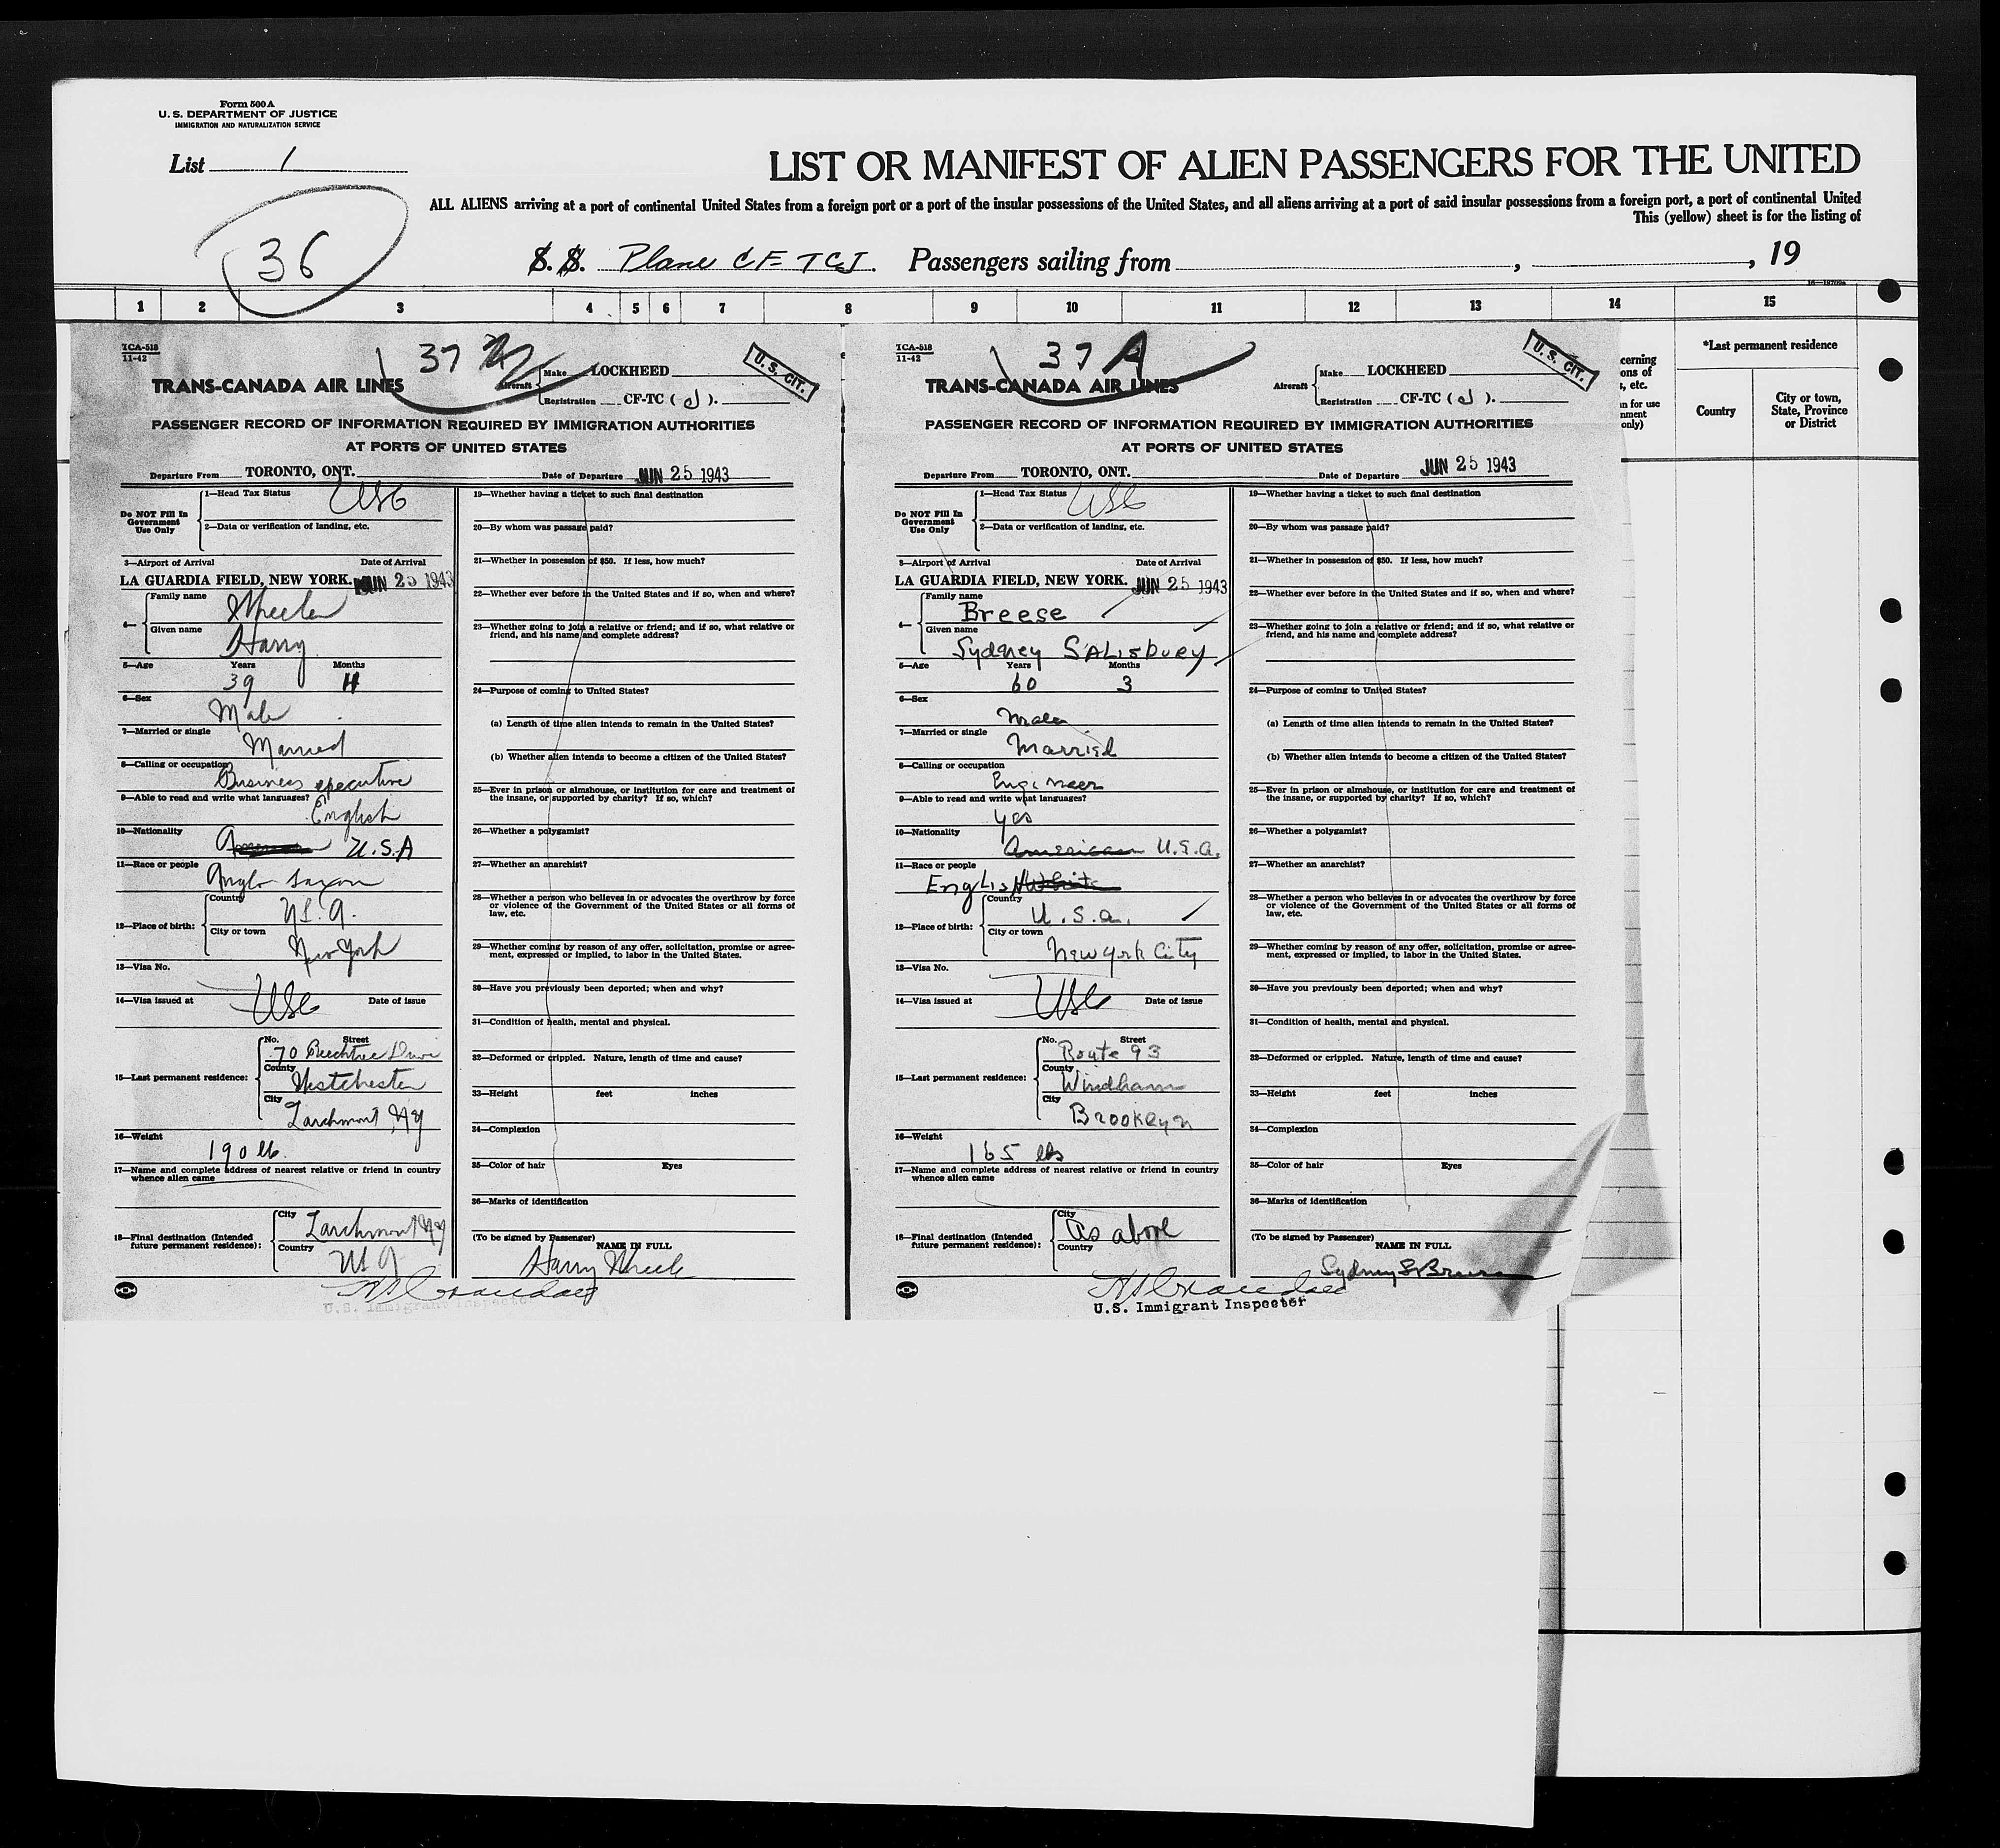 Form 500 A
U. S. DEPARTMENT OF JUSTICE
IMMIGRATION AND NATURALIZATION SERVICE
List 1
LIST OR MANIFEST OF ALIEN PASSENGERS FOR THE UNITED
ALL ALIENS arriving at a port of continental United States from a foreign port or a port of the insular possessions of the United States, and all aliens arriving at a port of said insular possessions from a foreign port, a port of continental United
This (yellow) sheet is for the listing of
36
S. S. Plane CF-TCJ. Passengers sailing from , , 19
1 2 3 4 5 6 7 8 9 10 11 12 13 14 15
TCA-518
11-42
37
TRANS-CANADA AIR LINES
Aircraft
Make LOCKHEED
Registration CF-TC ( J ).
U. S. CIT.
PASSENGER RECORD OF INFORMATION REQUIRED BY IMMIGRATION AUTHORITIES
AT PORTS OF UNITED STATES
Departure From TORONTO, ONT. Date of Departure JUN 25 1943
Do NOT Fill In
Government
Use Only
1—Head Tax Status USC
2—Data or verification of landing, etc.
3—Airport of Arrival Date of Arrival
LA GUARDIA FIELD, NEW YORK. JUN 25 1943
4—
Family name Wheeler
Given name Harry
5—Age Years Months
39
6—Sex
Male
7—Married or single
Married
8—Calling or occupation
Business executive
9—Able to read and write what languages?
English
10—Nationality
U.S.A
11—Race or people
Anglo Saxon
12—Place of birth:
Country
City or town
New York
13—Visa No.
14—Visa issued at USC Date of issue
15—Last permanent residence:
No. Street
70 Beechtree Drive
County
Westchester
City
Larchmont NY
16—Weight
190 lb.
17—Name and complete address of nearest relative or friend in country
whence alien came
18—Final destination (Intended
future permanent residence):
City Larchmont NY
Country
19—Whether having a ticket to such final destination
20—By whom was passage paid?
21—Whether in possession of $50. If less, how much?
22—Whether ever before in the United States and if so, when and where?
23—Whether going to join a relative or friend; and if so, what relative or
friend, and his name and complete address?
24—Purpose of coming to United States?
(a) Length of time alien intends to remain in the United States?
(b) Whether alien intends to become a citizen of the United States?
25—Ever in prison or almshouse, or institution for care and treatment of
the insane, or supported by charity? If so, which?
26—Whether a polygamist?
27—Whether an anarchist?
28—Whether a person who believes in or advocates the overthrow by force
or violence of the Government of the United States or all forms of
law, etc.
29—Whether coming by reason of any offer, solicitation, promise or agree-
ment, expressed or implied, to labor in the United States.
30—Have you previously been deported; when and why?
31—Condition of health, mental and physical.
32—Deformed or crippled. Nature, length of time and cause?
33—Height feet inches
34—Complexion
35—Color of hair Eyes
36—Marks of identification
(To be signed by Passenger)
NAME IN FULL
Harry Wheeler
U.S. Immigrant Inspector
TCA-518
11-42
37 A
TRANS-CANADA AIR LINES
Aircraft
Make LOCKHEED
Registration CF-TC ( J ).
U. S. CIT.
PASSENGER RECORD OF INFORMATION REQUIRED BY IMMIGRATION AUTHORITIES
AT PORTS OF UNITED STATES
Departure From TORONTO, ONT. Date of Departure JUN 25 1943
Do NOT Fill In
Government
Use Only
1—Head Tax Status USC
2—Data or verification of landing, etc.
3—Airport of Arrival Date of Arrival
LA GUARDIA FIELD, NEW YORK. JUN 25 1943
4—
Family name
Breese
Given name
Sydney SALisbury
5—Age Years Months
60 3
6—Sex
Male
7—Married or single
Married
8—Calling or occupation
Engineer
9—Able to read and write what languages?
yes
10—Nationality
American U.S.A.
11—Race or people
English White
12—Place of birth:
Country
U.S.A.
City or town
New York City
13—Visa No.
14—Visa issued at USC Date of issue
15—Last permanent residence:
No. Street
Route 93
County
Windham
City
Brooklyn
16—Weight
165 lbs
17—Name and complete address of nearest relative or friend in country
whence alien came
18—Final destination (Intended
future permanent residence):
City
As above
Country
19—Whether having a ticket to such final destination
20—By whom was passage paid?
21—Whether in possession of $50. If less, how much?
22—Whether ever before in the United States and if so, when and where?
23—Whether going to join a relative or friend; and if so, what relative or
friend, and his name and complete address?
24—Purpose of coming to United States?
(a) Length of time alien intends to remain in the United States?
(b) Whether alien intends to become a citizen of the United States?
25—Ever in prison or almshouse, or institution for care and treatment of
the insane, or supported by charity? If so, which?
26—Whether a polygamist?
27—Whether an anarchist?
28—Whether a person who believes in or advocates the overthrow by force
or violence of the Government of the United States or all forms of
law, etc.
29—Whether coming by reason of any offer, solicitation, promise or agree-
ment, expressed or implied, to labor in the United States.
30—Have you previously been deported; when and why?
31—Condition of health, mental and physical.
32—Deformed or crippled. Nature, length of time and cause?
33—Height feet inches
34—Complexion
35—Color of hair Eyes
36—Marks of identification
(To be signed by Passenger)
NAME IN FULL
Sydney S Breese
U.S. Immigrant Inspector
cerning
ons of
, etc.
n for use
nment
only)
*Last permanent residence
Country
City or town,
State, Province
or District